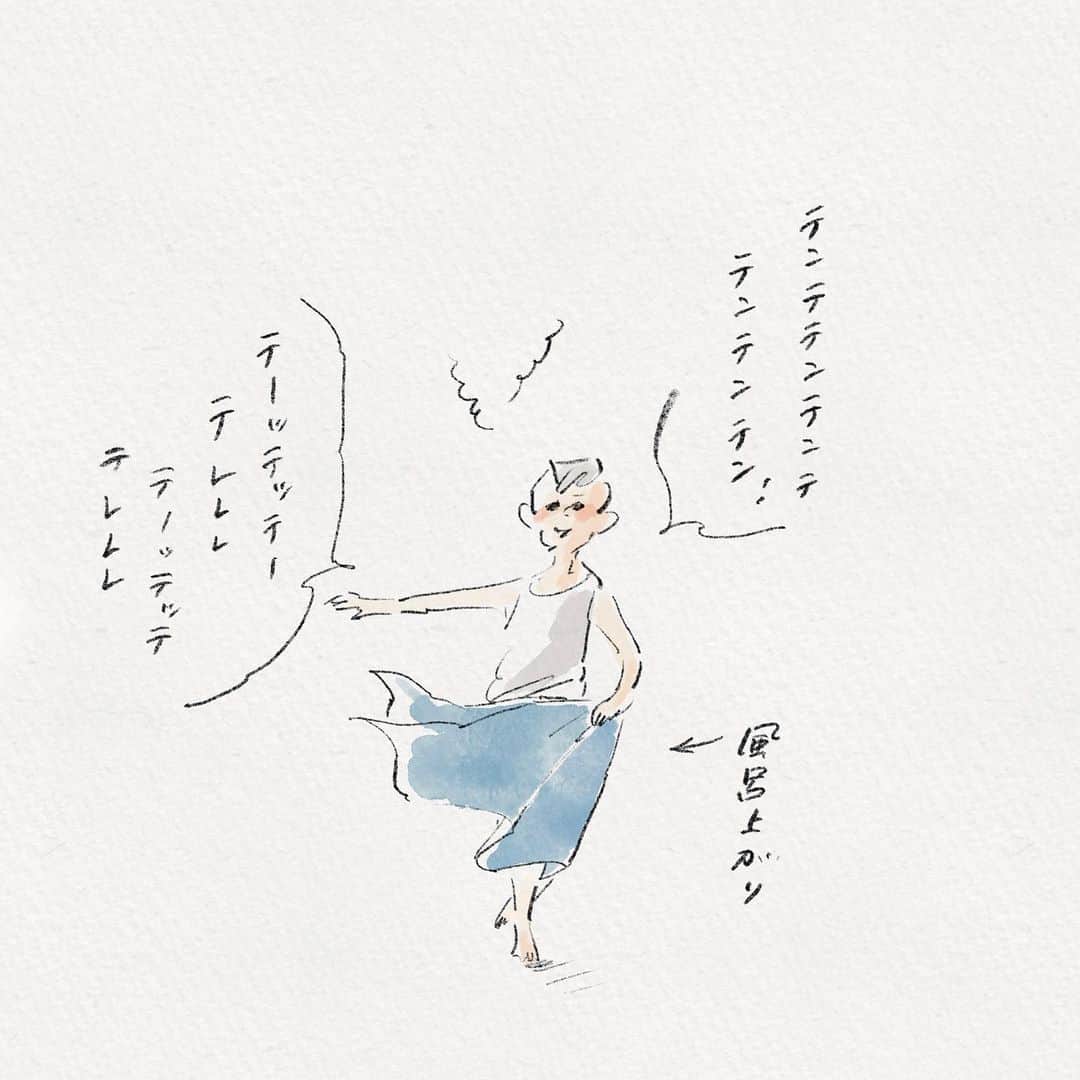 テンテテンテンテ
テンテンテン!
テーッテッテー
テレレレ
テーッテッテ
テレレレ
←風呂上がり